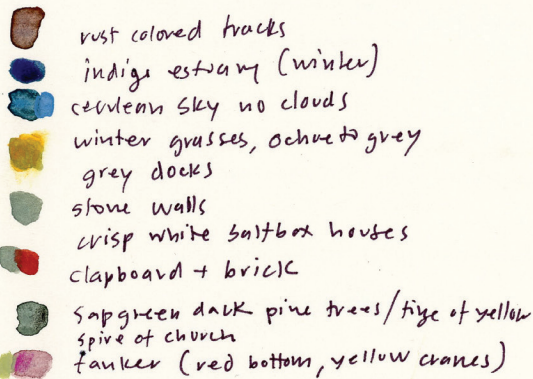 rust colored tracks
indigo estuary (winter)
cerulean sky no clouds
winter grasses, ochre to grey
grey docks
stone walls
crisp white saltbox houses
clapboard + brick
sapgreen dark pine trees / tige of yellow
spire of church
tanker (red bottom, yellow cranes)